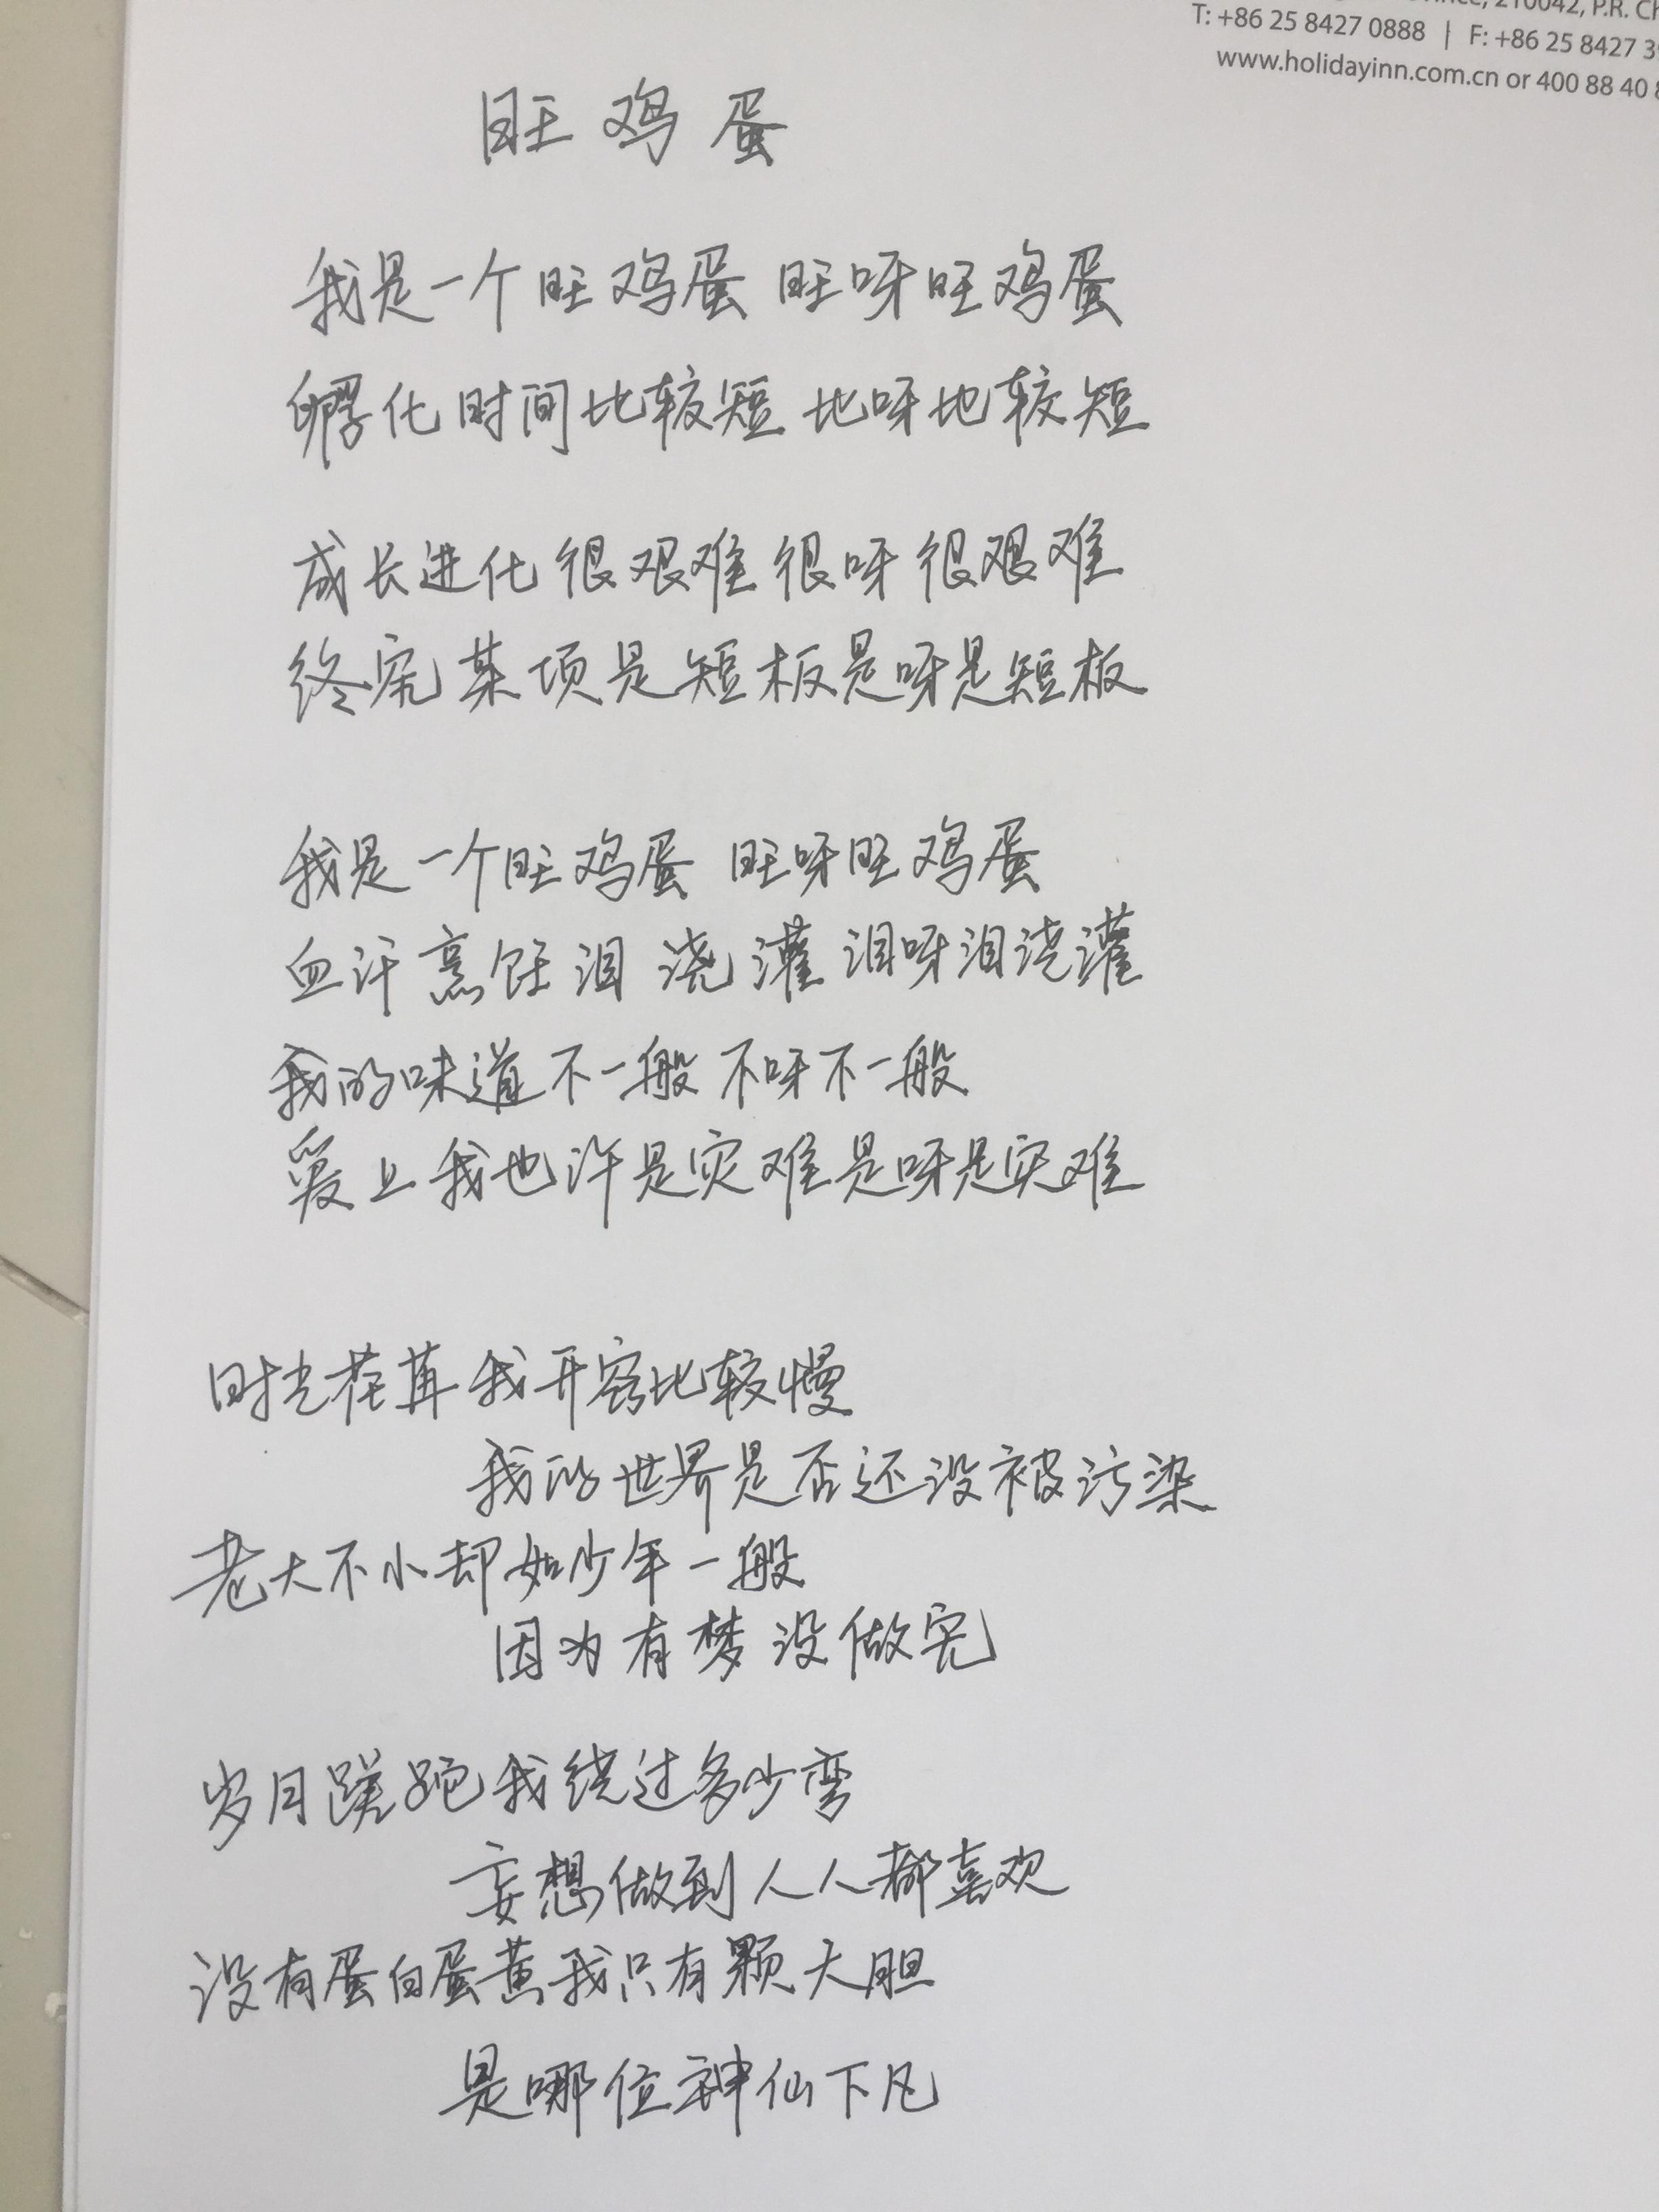 210042, P.R. Ch
T: +86 25 8427 0888 | F: +86 25 8427 3
www.holidayinn.com.cn or 400 88 40
旺鸡蛋
我是一个旺鸡蛋 旺呀旺鸡蛋
孵化时间比较短 比呀比较短
成长进化很艰难 很呀很艰难
终究某项是短板是呀是短板
我是一个旺鸡蛋 旺呀旺鸡蛋
血汗烹饪泪浇灌 泪呀泪浇灌
我的味道不一般 不呀不一般
爱上我也许是灾难是呀是灾难
时光荏苒我开窍比较慢
我的世界是否还没被污染
老大不小却如少年一般
因为有梦没做完
岁月蹉跎我绕过多少弯
妄想做到人人都喜欢
没有蛋白蛋黄我只有颗大胆
是哪位神仙下凡